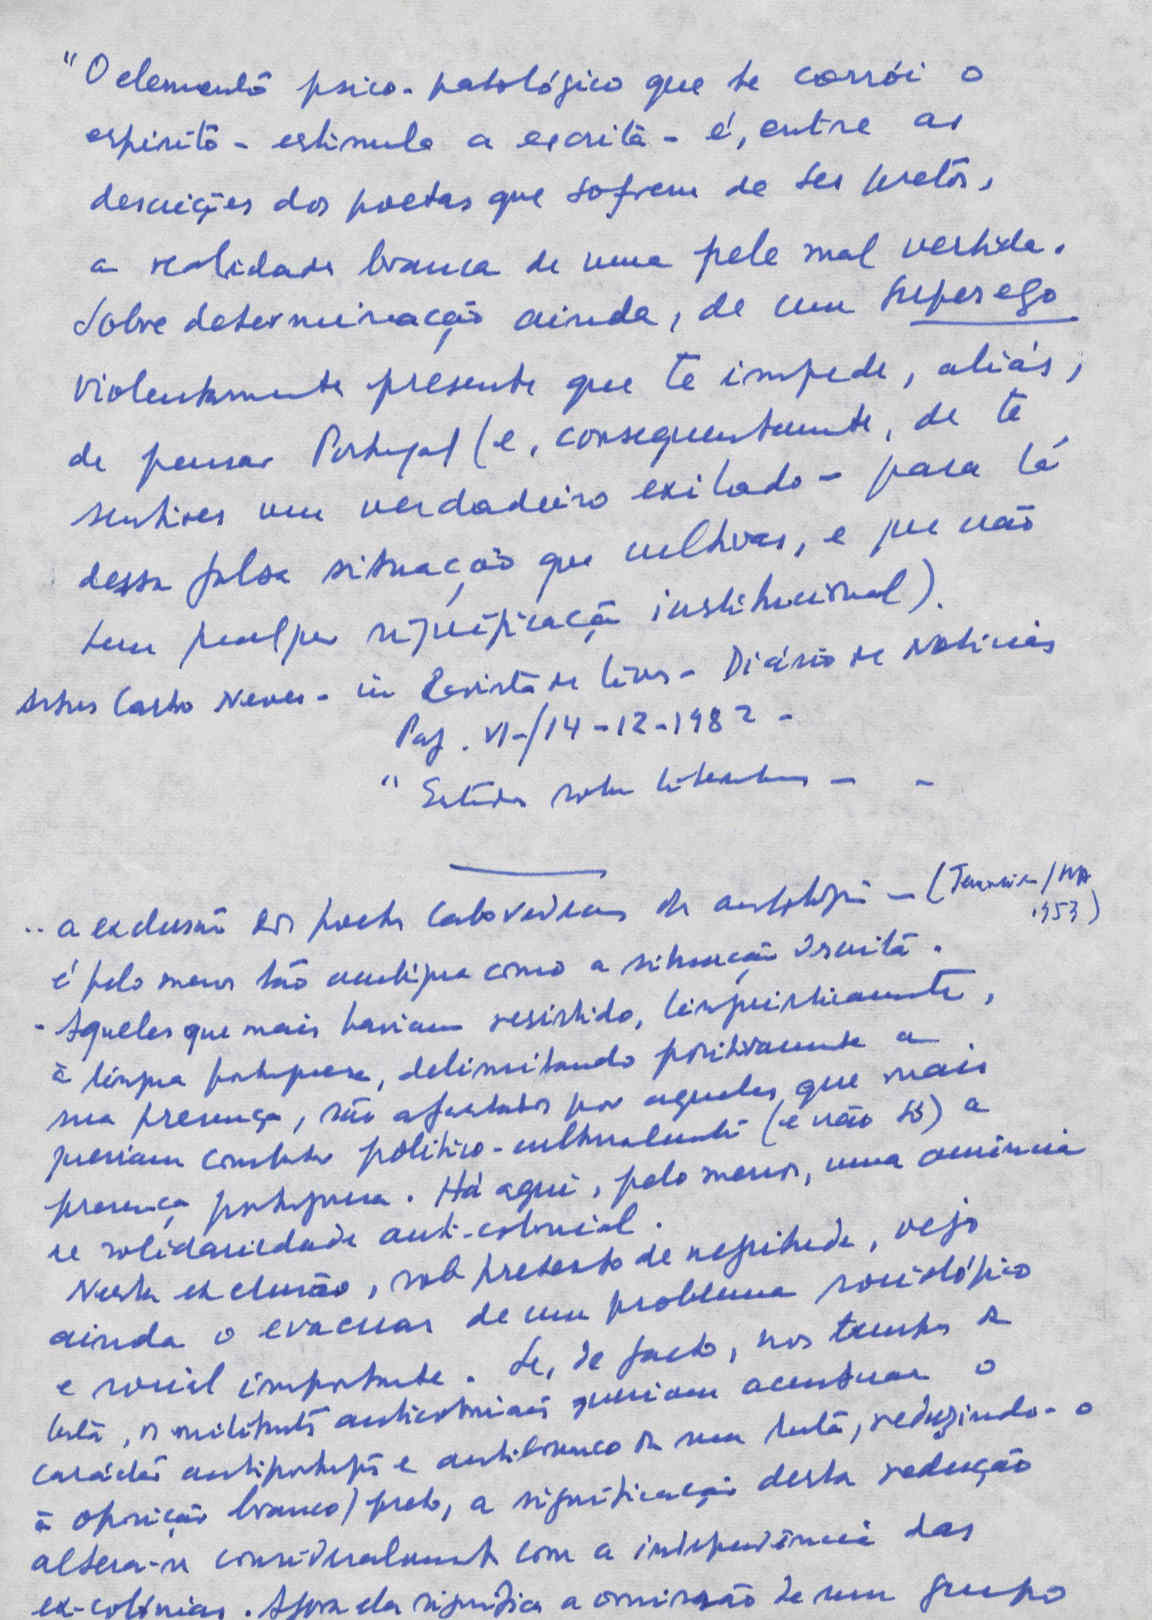 "O elemento psico-patológico que te corrói o
espírito - estimula a escrita - é, entre as
descrições dos poetas que sofrem de ser pretos,
a realidade branca de uma pele mal vestida.
Sobredeterminação ainda, de um Superego
violentamente presente que te impede, aliás,
de pensar Portugal (e, consequentemente, de te
sentires um verdadeiro exilado - para lá
dessa falsa situação que cultivas, e que não
tem qualquer significação institucional).
Castro Neves - in Revista de Livros - Diário de Notícias
Pag. VI -/14-12-1982 -
" sobre literatura -
.. a exclusão dos poetas caboverdeanos da antologia - (
1953)
é pelo menos tão ambígua como a situação descrita.
- Aqueles que mais haviam resistido, linguisticamente,
à língua portuguesa, delimitando positivamente a
sua presença, são afastados por aqueles que mais
queriam combater político-culturalmente (e não só) a
presença portuguesa. Há aqui, pelo menos, uma ausência
de solidariedade anti-colonial.
Nesta exclusão, sob pretexto de negritude, vejo
ainda o evacuar de um problema sociológico
e social importante. Se, de facto, nos tempos da
luta, os militantes anticoloniais queriam acentuar o
carácter antiportuguês e antibranco da sua luta, reduzindo-o
à oposição branco/preto, a significação desta redução
altera-se consideravelmente com a independência das
ex-colónias. Agora ela significa a omissão de um grupo